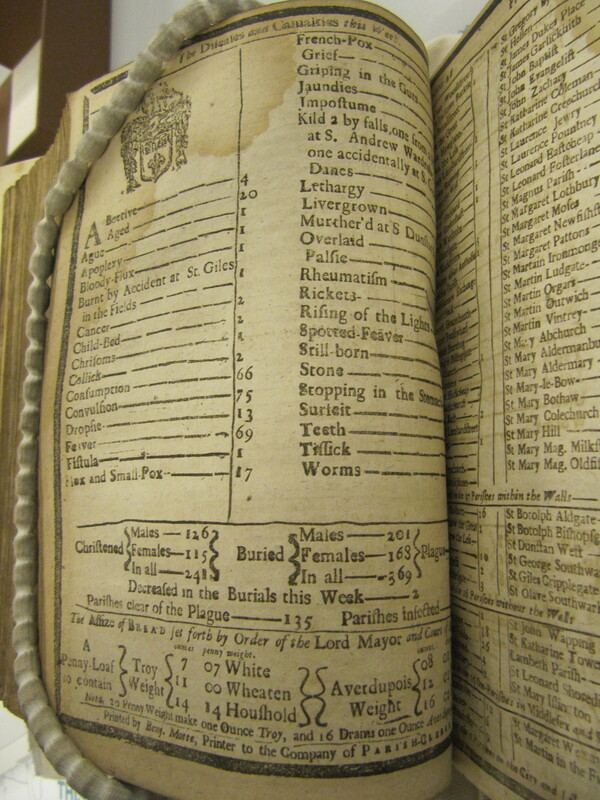 The Diseases and Casualties this Week.
Abortive 4
Aged 20
Ague 1
Apoplexy 1
Bloody-Flux 1
Burnt by Accident at St. Giles
in the Fields 1
Cancer 2
Child-Bed 2
Chrisoms 1
Collick 2
Consumption 66
Convulsion 75
Dropsie 13
Feaver 69
Fistula 1
Flox and Small-Pox 17
French-Pox
Grief
Griping in the Guts
Jaundies
Impostume
Kild 2 by falls, one from
at S. Andrew
one accidentally at S.
Danes
Lethargy
Livergrown
Murther'd at S
Overlaid
Palsie
Rheumatism
Rickets
Rising of the Lights
Spotted-Feaver
Still-born
Stone
Stopping in the Stomach
Surfeit
Teeth
Tissick
Worms
Christened Males 126 Females 115 In all 241 Buried Males 201 Females 168 In all 369 Plague
Decreased in the Burials this Week 2
Parishes clear of the Plague 135 Parishes infected
The Assize of BREAD set forth by Order of the Lord Mayor and Court
ounces penny weight.
A Penny-Loaf to contain Troy Weight 7 07 White
11 00 Wheaten
14 14 Houshold
Averdupois Weight 08
12
16
Note, 20 Penny Weight make one Ounce Troy, and 16 Drams one Ounce
Printed by Benj. Motte, Printer to the Company of PARISH-CLERKS
St James Dukes Place
St James Garlickhith
St John Baptist
St John Evangelist
St John Zachary
St Katharine Coleman
St Katharine Creechurch
St Laurence Jewry
St Laurence Pountney
St Leonard Eastcheap
St Leonard Fosterlane
St Magnus Parish
St Margaret Lothbury
St Margaret Moses
St Margaret Newfishst
St Margaret Pattons
St Martin Ironmong
St Martin Ludgate
St Martin Orgars
St Martin Outwich
St Martin Vintrey
St Mary Abchurch
St Mary Aldermanbu
St Mary Aldermary
St Mary-le-Bow
St Mary Bothaw
St Mary Colechurch
St Mary Hill
St Mary Mag. Milkst
St Mary Mag. Oldfis
Parishes within the Walls
St Botolph Aldgate
St Botolph Bishopsg
St Dunstan West
St George Southwar
St Giles Cripplegate
St Olave Southwark
Parishes without the Walls
St John Wapping
St Katharine Tower
Lambeth Parish
St Leonard Shoredi
St Mary Islington
in Middlesex and
St Margaret
St Martin in the